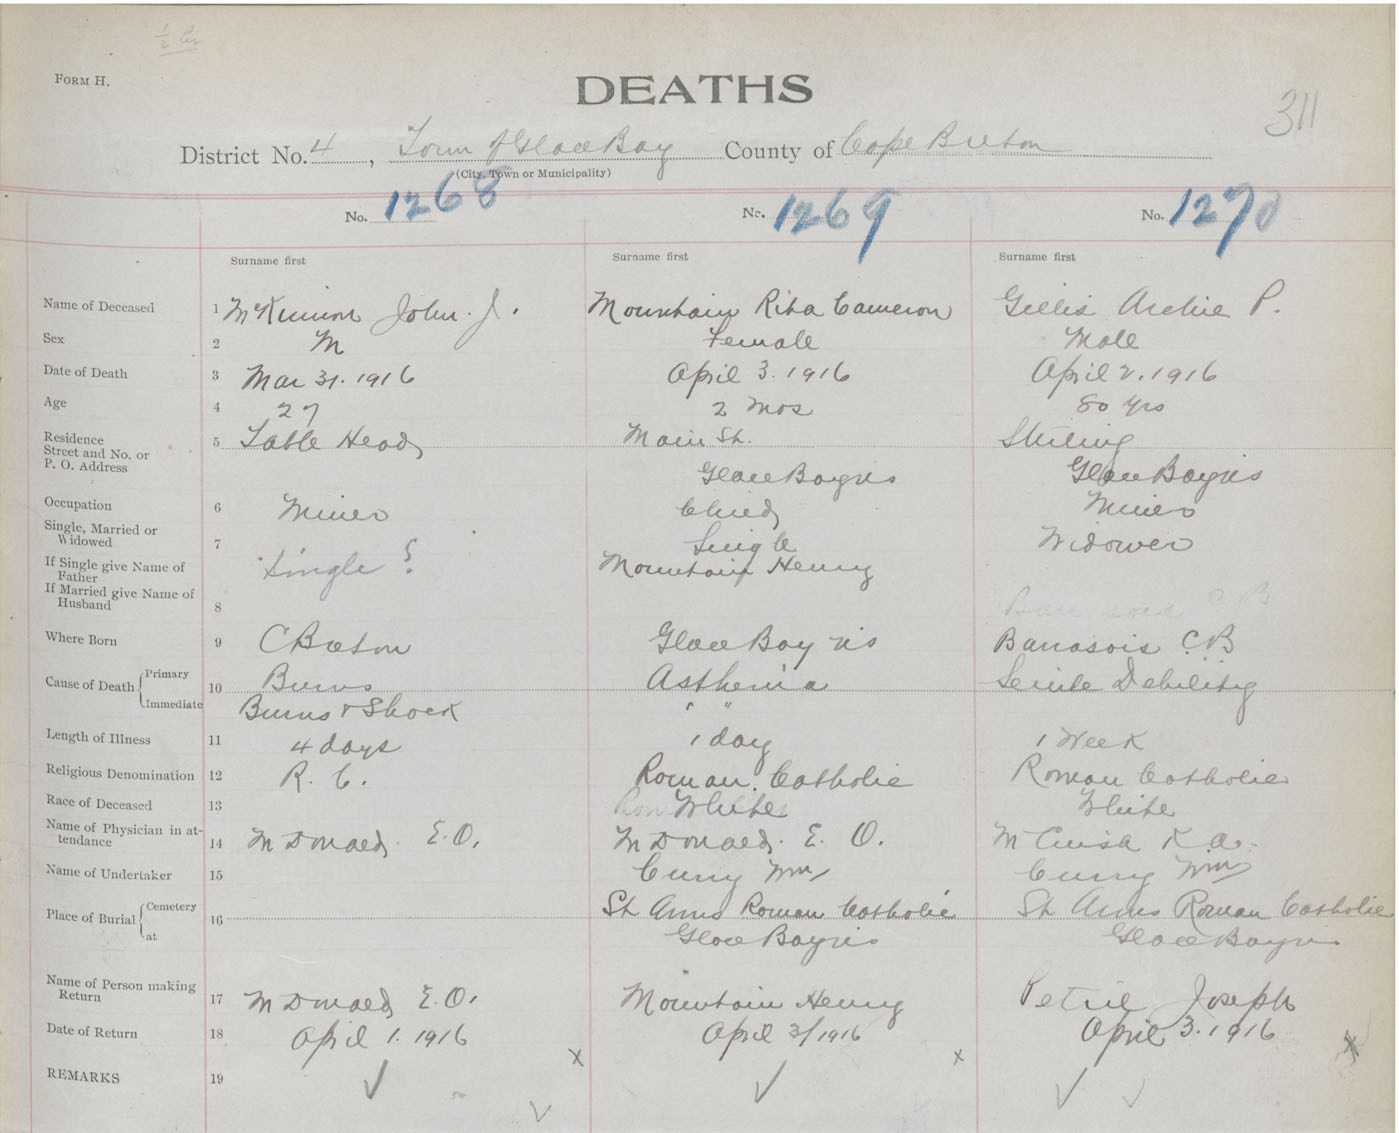 FORM H.
DEATHS
311
District No. 4, Town of Glace Bay County of Cape Breton
(City, Town or Municipality)
No. 1268 No. 1269 No. 1270
Surname first Surname first Surname first
Name of Deceased 1 McKinnon John. J. Mountain Rita Cameron Gillis Archie P.
Sex 2 M Female Male
Date of Death 3 Mar 31. 1916 April 3. 1916 April 2. 1916
Age 4 27 2 mos 80 yrs
Residence 5 Table Head Main St. Stirling
Street and No. or
P. O. Address Glace Bay NS Glace Bay NS
Occupation 6 Miner Child Miner
Single, Married or
Widowed 7 Single ? Single Widower
If Single give Name of
Father Mountain Henry
If Married give Name of
Husband 8
Where Born 9 C Breton Glace Bay NS C.B
Cause of Death Primary 10 Burns Asthenia Senile Debility
Immediate Burns & Shock " "
Length of Illness 11 4 days 1 day 1 Week
Religious Denomination 12 R. C. Roman Catholic Roman Catholic
Race of Deceased 13 White White
Name of Physician in at-
tendance 14 McDonald, E. O. McDonald. E. O.
Name of Undertaker 15 Curry Wm Curry Wm
Place of Burial Cemetery 16 St Anns Roman Catholic St Anns Roman Catholic
at Glace Bay NS Glace Bay NS
Name of Person making
Return 17 McDonald E. O. Mountain Henry Petrie Joseph
Date of Return 18 April 1. 1916 April 3/1916 April 3. 1916
REMARKS 19